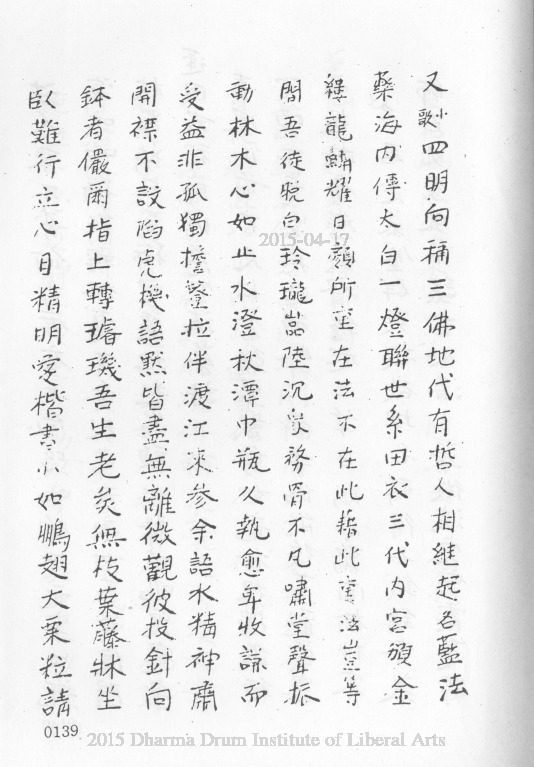 又小歌四明向稱三佛地代有哲人相継起名藍法
藥海內傳太白一燈聯世系田衣三代內宮頒金
襴龍鱗耀日額所望在法不在此藉此重法豈等
閒吾徒晥白玲瓏嵓陸沉眾務骨不凡嘯堂聲振
動林木心如止水澄秋潭巾瓶久執愈牢收謙而
受益非孤獨擔簦拉伴渡江來參余語水精神肅
開襟不設陷虎機語默皆盡無離微觀彼投針向
鉢者儼爾指上轉璿璣吾生老矣無枝葉藤牀坐
臥難行立心目精明愛楷書小如鵬翅大粟粒請
0139
2015-04-17
2015 Dharma Drum Institute of Liberal Arts